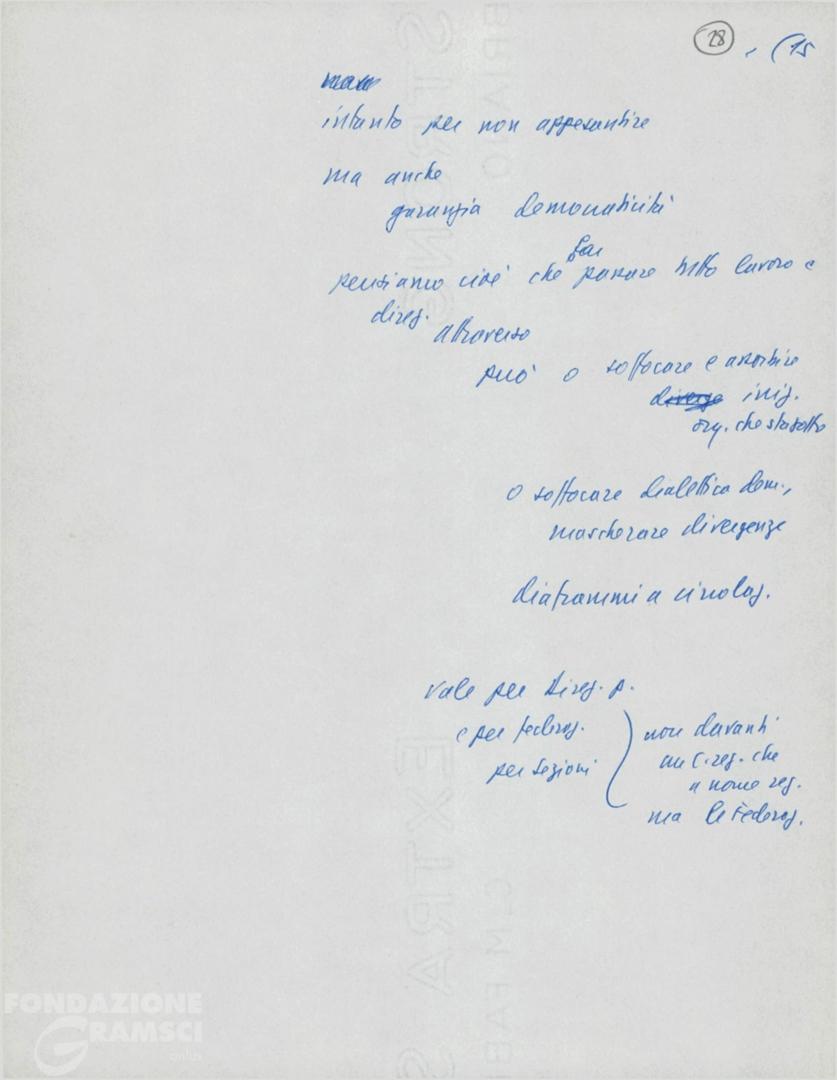 28 (15
intanto per non appesantire
ma anche
garanzia democraticità
far
pensiamo cioè che passare tutto lavoro e
direz.
attraverso
può o soffocare e assorbire
diverge iniz.
org. che sta sotto
o soffocare dialettica dem.,
mascherare divergenze
diaframmi a circolaz.
vale per Direz. p.
e per federaz. non davanti
C. reg. che
per sezioni a nome reg.
ma le Federaz.
FONDAZIONE
GRAMSCI
onlus
STRONG
EXTRA
FABRIANO
C.M. FABRI